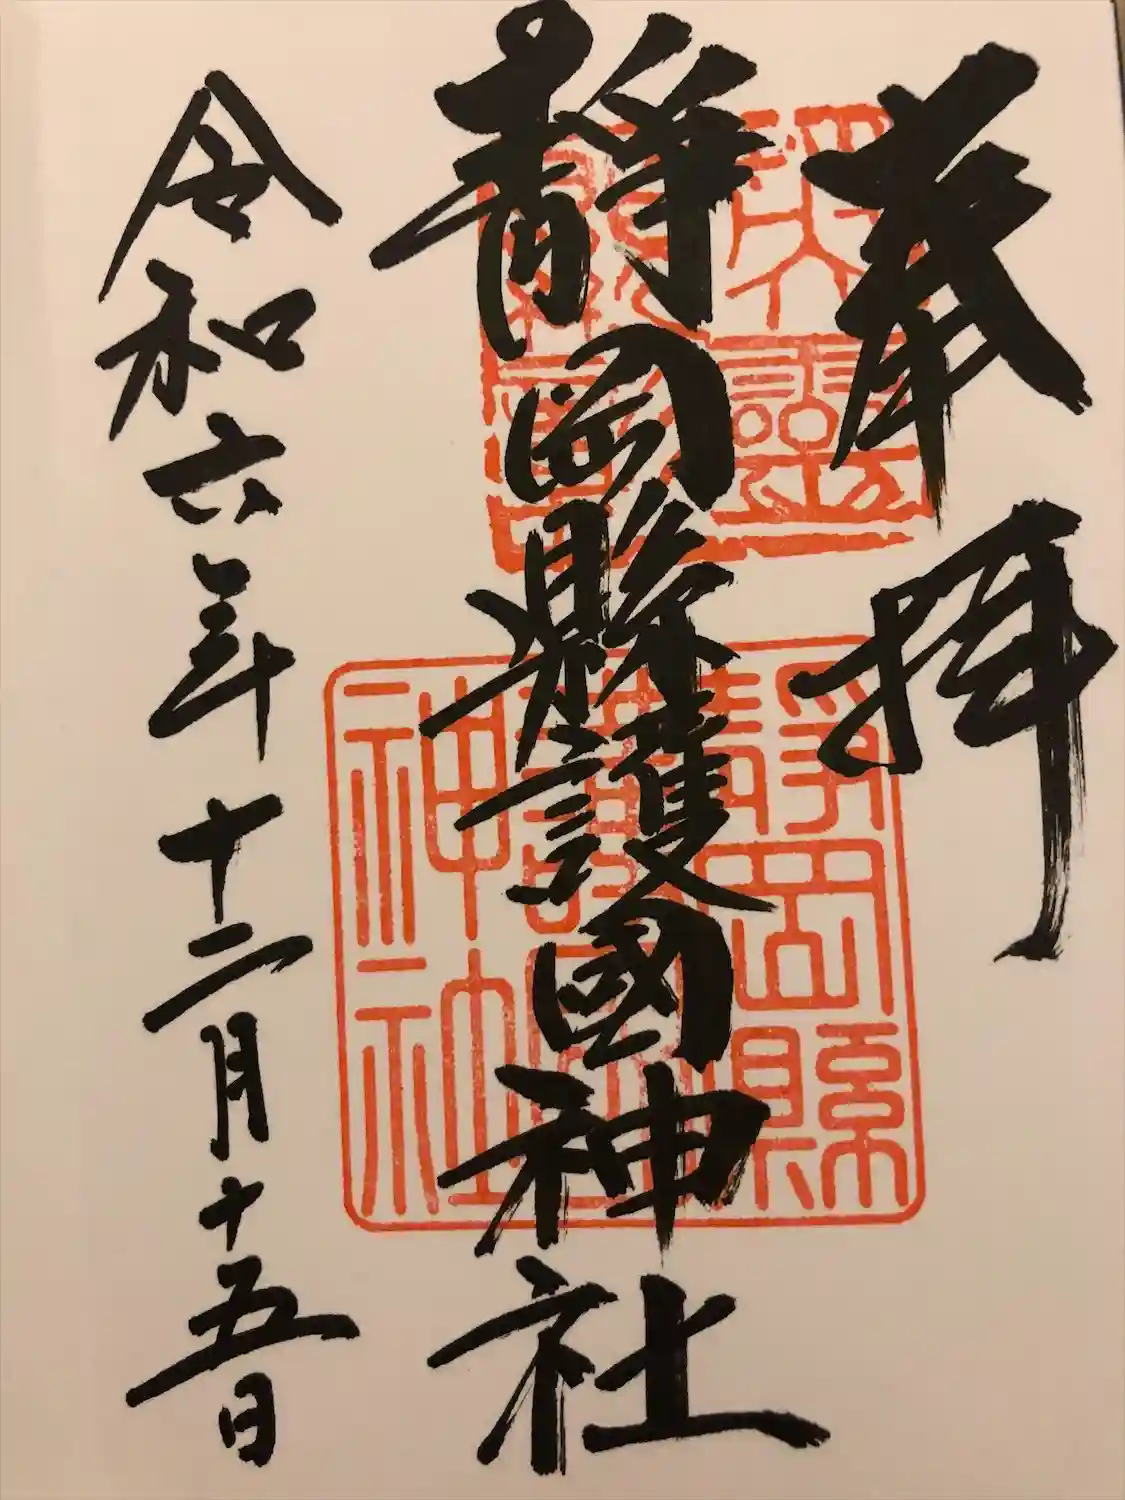 奉拝
静岡縣護國神社
令和六年十二月十五日
静岡縣護國神社